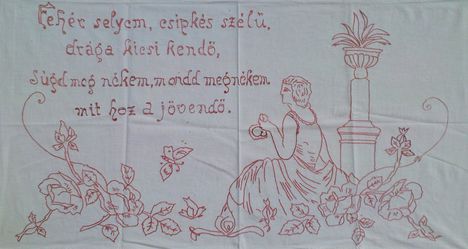 Fehér selyem, csipkés szélű,
drága kicsi kendő,
Súgd meg nékem, mondd megnékem
mit hoz a jövendő.